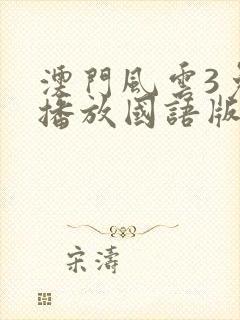 澳門風雲3
播放國語版
宋濤